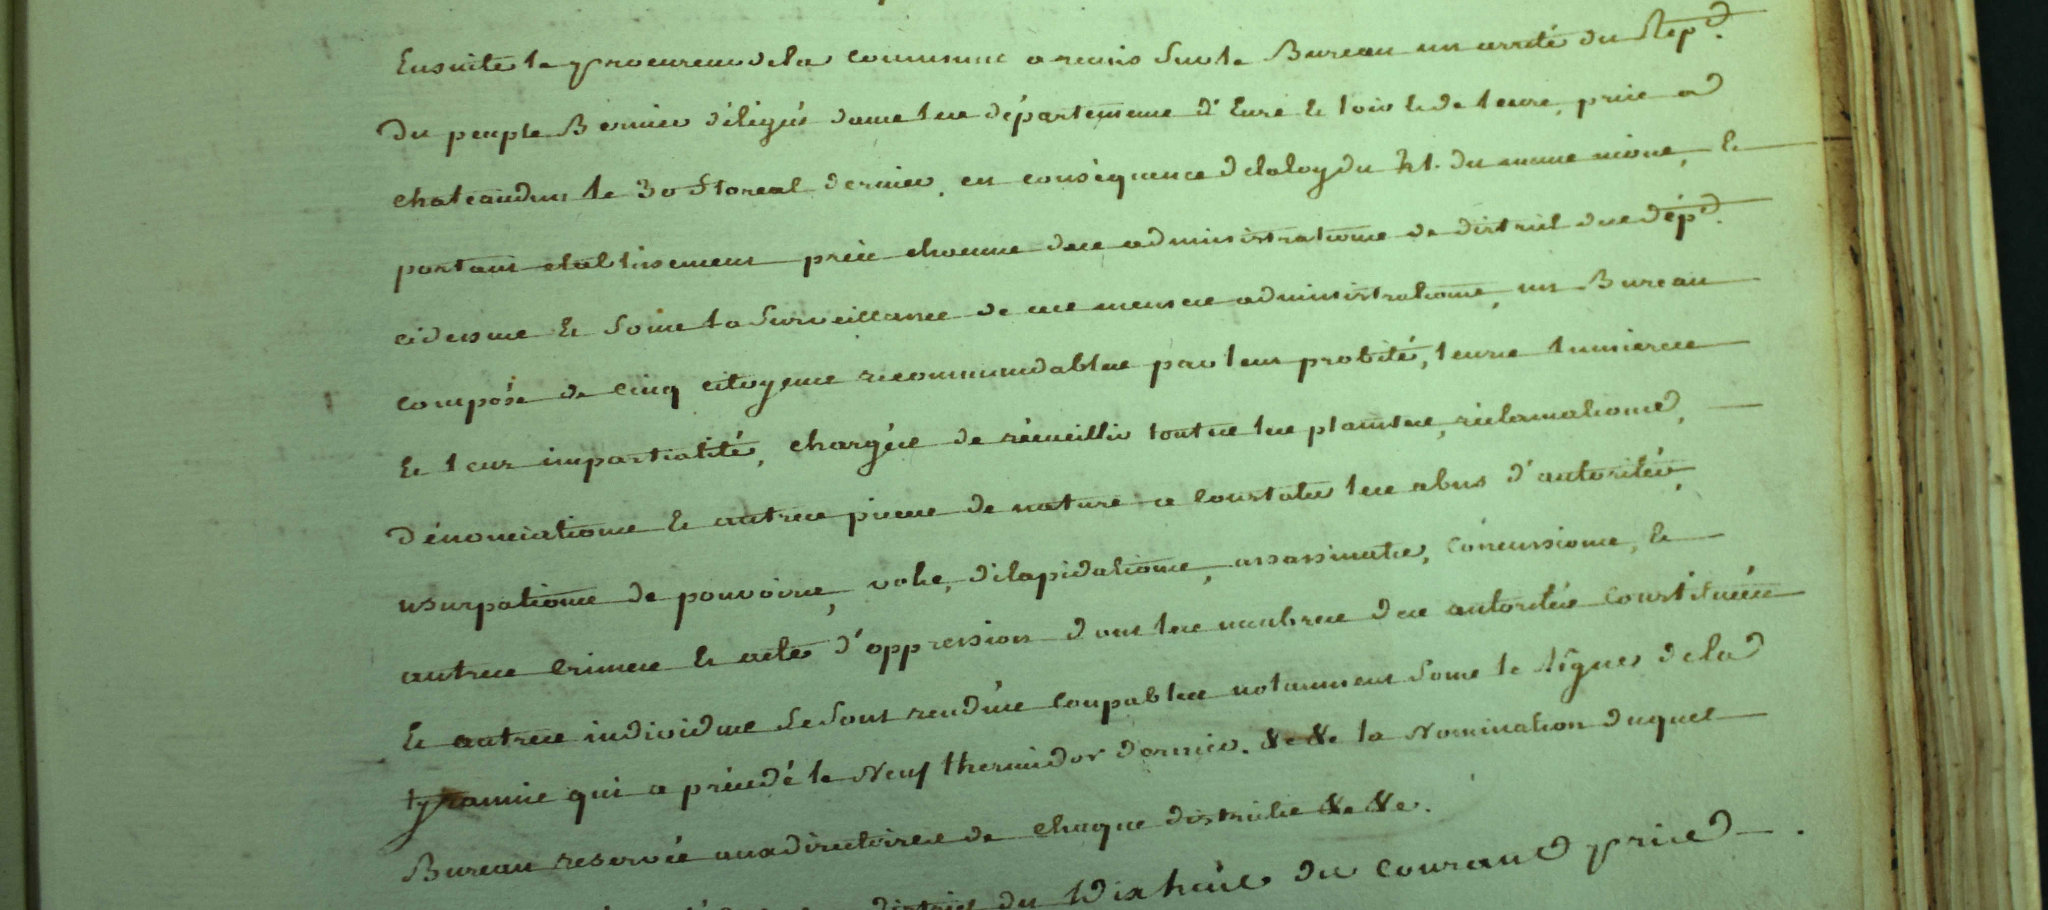 Ensuite le procureur de la commune a remis sur le Bureau un arrêté du Rep.
du peuple Bernier délégué dans les départements d'Eure et loir et de l'eure, pris a
chateaudun le 30 floreal dernier, en conséquence de la loy du du meme mois, et
portant etablissement près chacune des administrations de district des dép.
cidessus et sous la surveillance de ces memes administrations, un Bureau
composé de cinq citoyens recommandables par leur probité, leurs lumieres
et leur impartialité, chargés de récueillir toutes les plaintes, réclamations,
dénonciations et autres pieces de nature a constater les abus d'autorités,
usurpations de pouvoirs, vols, dilapidations, assassinats, concussions, et
autres crimes et actes d'oppression dont les membres des autorités constituées
et autres individus se sont rendus coupables notamment sous le Règne de la
tyrannie qui a précédé le Neuf thermidor dernier. &c &c la Nomination duquel
Bureau reservée aux directoires de chaque districts &c &c.
district du Dix huit du courant pris